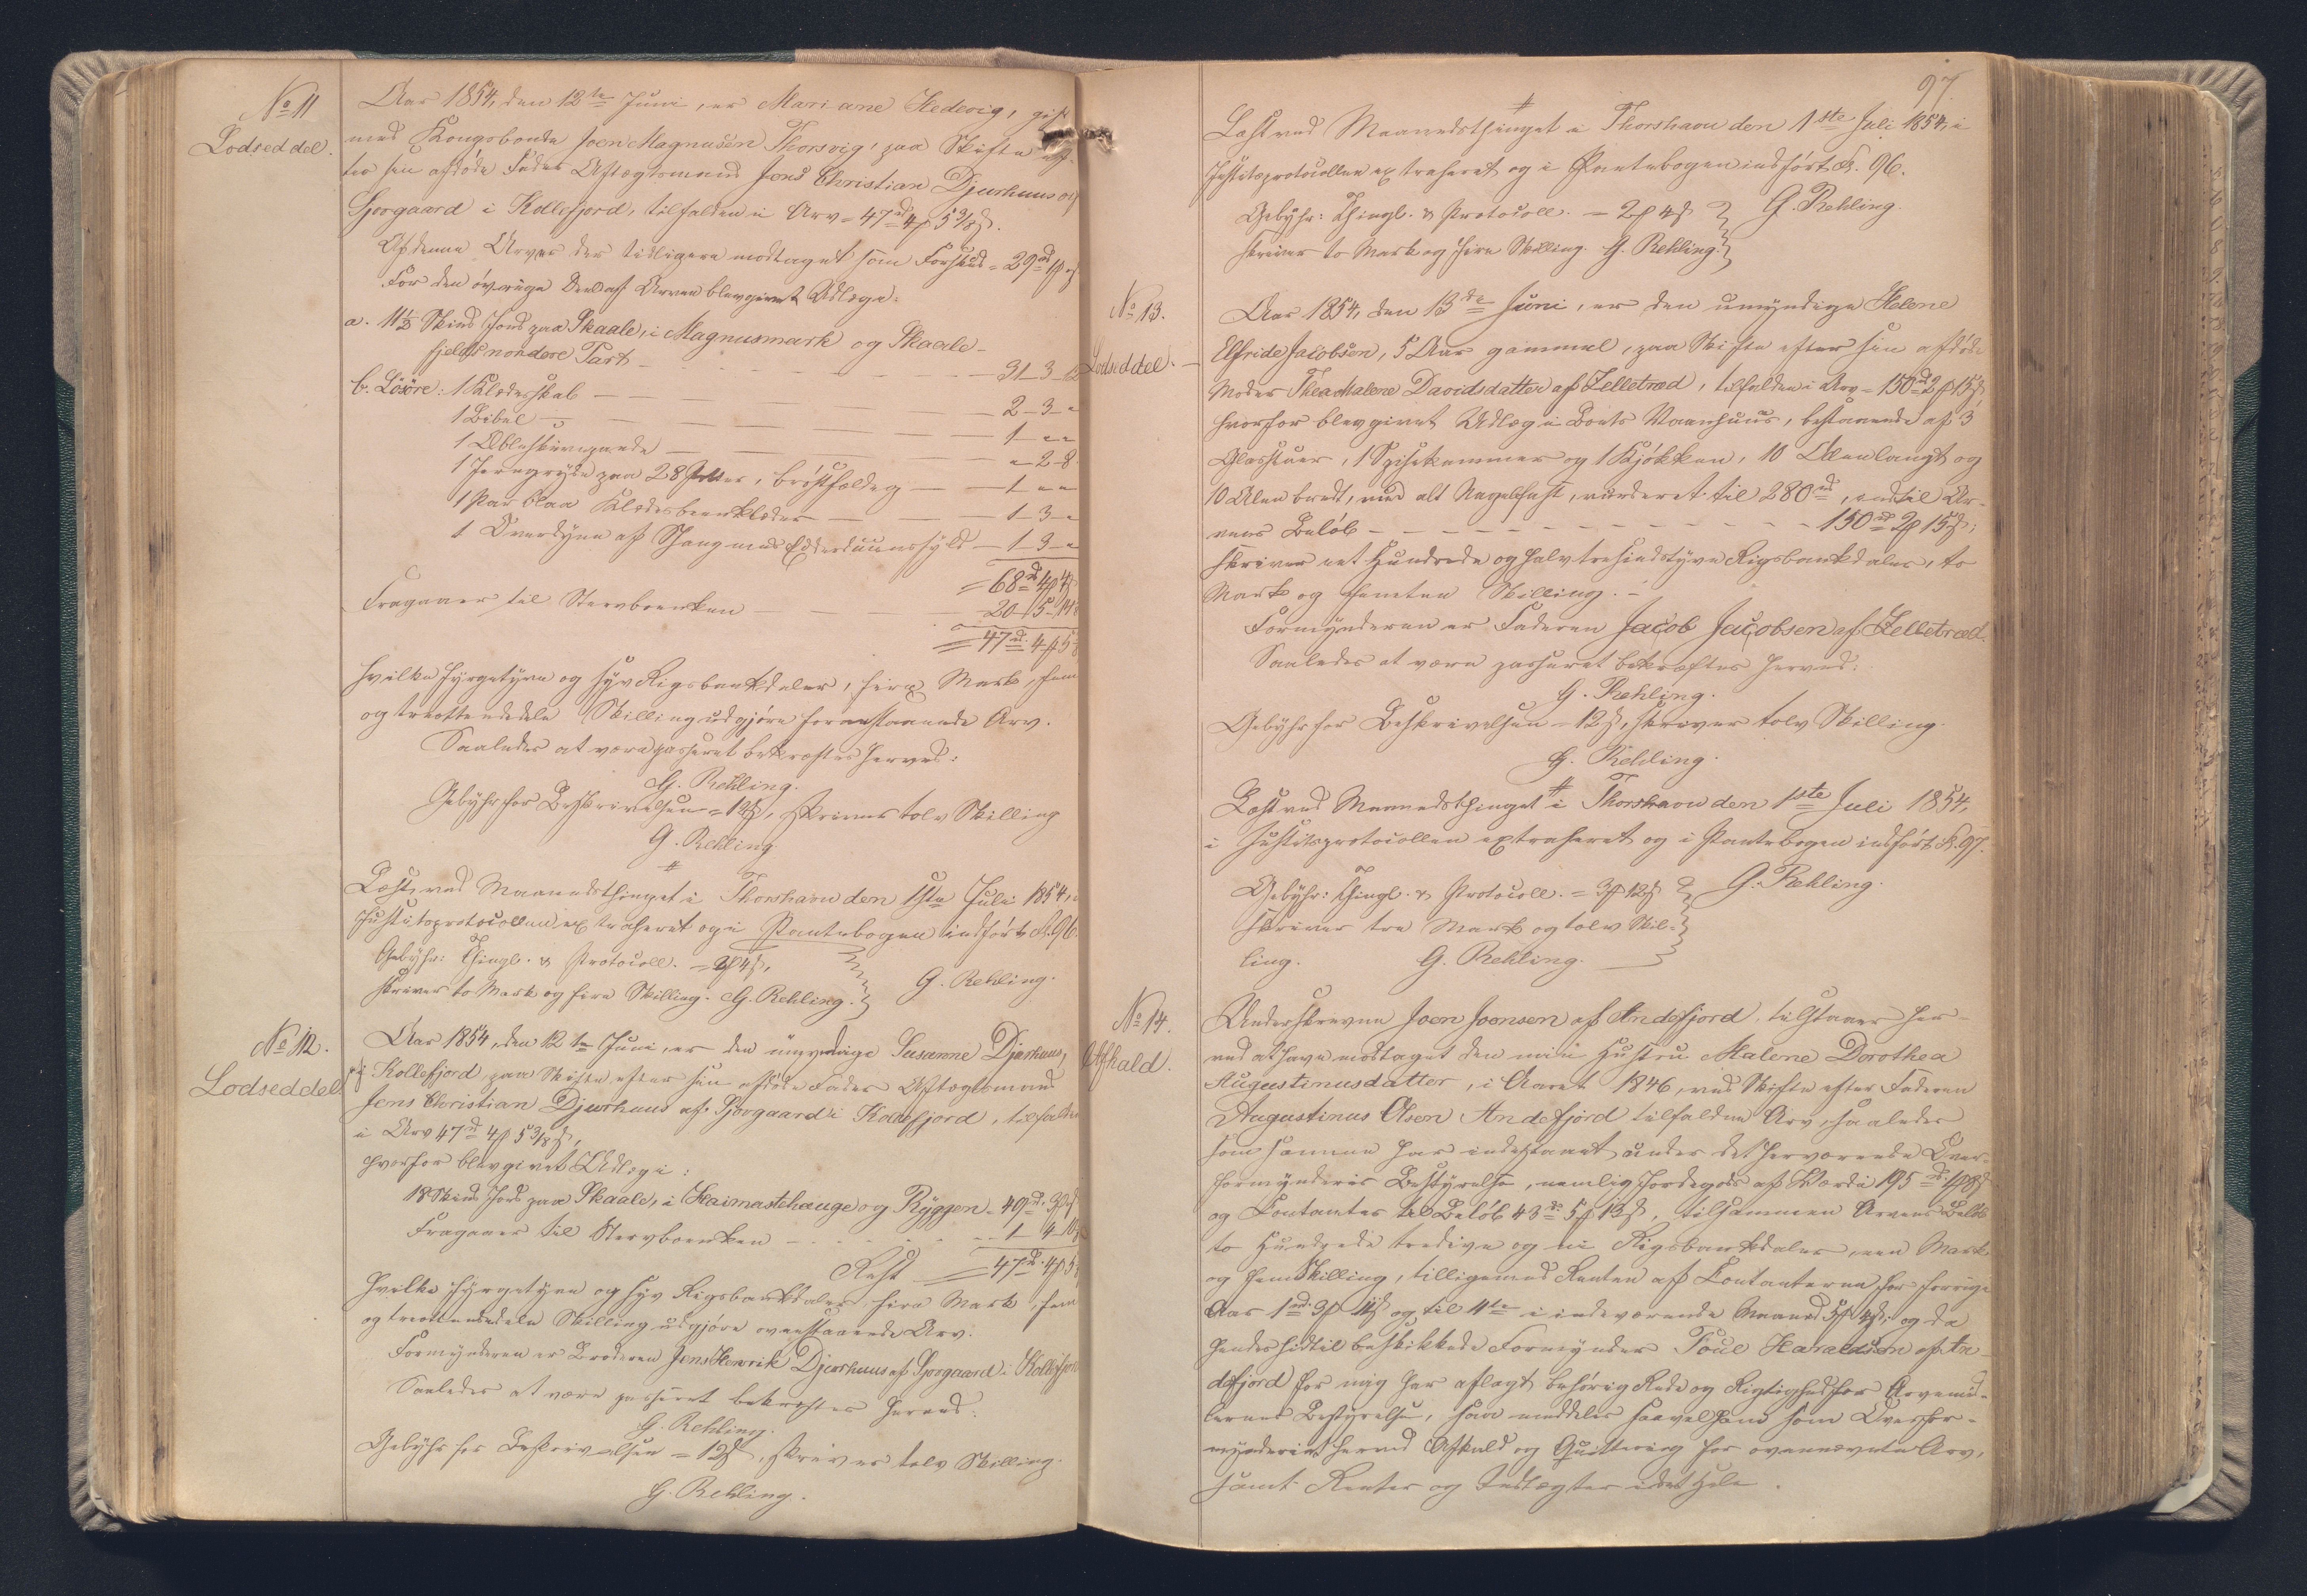 No 11
Lodseddel.
Aar 1854, den 12te Juni, er Mariane Hedevig, gift
med Kongsbonde Joen Magnusen Thorsvig, paa Skifte ef-
ter sin afdöde Fader Aftægtsmand Jens Christian Djurhuus af
Sjorgaard i Kollefjord, tilfalden i Arv = 47rd 4ß 5 3/8ß.
Af denne Arv er der tidligere modtaget som Forskud = 29rd
For den övrige Deel af Arven blev givet Udlæg:
a. 11½ Skind Jord paa Skaale, i Magnusmark og Skaale-
fjelds nordere Part - 31-3-12
b. Lösöre: 1 Klædeskab - 2-3-"
1 Bibel - 1 " "
1 Æbleskivepande - " 2-8
1 Jerngryde paa 28 Potter, bröstfældig - 1 " "
1 Par blaa Klædesbeenklæder - 1-3-"
1 Overdyne af Vang med Edderduunsfyld - 1-3-"
= 68rd 4ß 4
Fragaaer til Stervboenken - 20-5-14
= 47rd. 4ß 5
hvilke fyrgetyve og syv Rigsbankdaler, fire Mark, fem
og treottendedele Skilling udgjöre foranstaaende Arv.
Saaledes at være passeret bekræftes herved:
G. Rehling.
Gebyhr for Beskrivelsen = 12ß, skriver tolv Skilling
G. Rehling
Læst ved Maanedsthinget i Thorshavn den 1ste Juli 1854, i
Justitsprotocollen extraheret og i Pantebogen indfört S. 96.
Gebyhr: Thingl. & Protocoll. = 2ß 4ß,
skriver to Mark og fire Skilling. G. Rehling. G. Rehling.
No 12.
Lodseddel
Aar 1854, den 12te Juni, er den umyndige Susanne Djurhuus,
af Kollefjord, paa Skifte efter sin afdöde Fader Aftægtsmand
Jens Christian Djurhuus af Sjorgaard i Kollefjord, tilfalden
i Arv 47rd 4ß 5 3/8ß,
hvorfor blev givet Udlæg i:
18 Skind Jord paa Skaale, i Haimastehauge og Ryggen = 49rd. 3ß
Fragaaer til Stervboenken - 1 4-10
Rest = 47rd. 4ß 5
hvilke fyrgetyve og syv Rigsbankdaler, fire Mark, fem
og treottendedele Skilling udgjöre ovenstaaende Arv.
Formynderen er Broderen Jens Henrik Djurhuus af Sjorgaard i Kollefjord
Saaledes at være passeret bekræftes herved:
G. Rehling.
Gebyhr for Beskrivelsen = 12ß, skriver tolv Skilling.
G. Rehling.
97
Læst ved Maanedsthinget i Thorshavn den 1ste Juli 1854, i
Justitsprotocollen extraheret og i Pantebogen indfört S. 96.
Gebyhr: Thingl. & Protocoll. = 2ß 4ß G. Rehling.
skriver to Mark og fire Skilling. G. Rehling.
No 13.
Lodseddel.
Aar 1854, den 13de Juni, er den umyndige Helene
Elfride Jacobsen, 5 Aar gammel, paa Skifte efter sin afdöde
Moder Thea Malene Davidsdatter af Zelletræd, tilfalden i Arv = 150rd 2ß 15ß,
hvorfor blev givet Udlæg i Boets Vaanhuus, bestaaende af 3
Glasstuer, 1 Spisekammer og 1 Kjökken, 10 Alen langt og
10 Alen bredt, med alt Nagelfast, vurderet til 280rd, indtil Ar-
vens Belöb - 150rd 2ß 15ß,
skriver eet Hundrede og halvtresindstyve Rigsbankdaler, to
Mark og femten Skilling. -
Formynderen er Faderen Jacob Jacobsen af Zelletræd.
Saaledes at være passeret bekræftes herved:
G. Rehling.
Gebyhr for Beskrivelsen = 12ß, skriver tolv Skilling.
G. Rehling.
Læst ved Maanedsthinget i Thorshavn den 1ste Juli 1854,
i Justitsprotocollen extraheret og i Pantebogen indfört S. 97.
Gebyhr: Thingl. & Protocoll. = 3ß 12ß G. Rehling.
skriver tre Mark og tolv Skil-
ling. G. Rehling.
No 14.
Afkald.
Underskrevne Joen Joensen af Andefjord tilstaaer her-
ved at have modtaget den min Hustru Malene Dorothea
Augustinusdatter, i Aaret 1846, ved Skifte efter Faderen
Augustinus Olsen Andefjord tilfaldne Arv, saaledes
som samme har indestaaet under det herværende Over-
formynderies Bestyrelse, nemlig Jordegods af Værdi 195rd. 1ß 8ß
og Contanter til Belöb 43rd 5ß 13ß, tilsammen Arvens Belöb
to Hundrede tredive og ni Rigsbankdaler, een Mark
og fem Skilling, tilligemed Renten af Contanterne for forrige
Aar 1rd. 3ß og til 11te i indeværende Maaned 5ß 4ß; og da
hendes hidtil beskikkede Formynder Poul Haraldsen af An-
defjord for mig har aflagt behörig Rede og Rigtighed for Arvemid-
lernes Bestyrelse, saa meddeles saavel ham som Overfor-
mynderiet herved Afkald og Quittering for ovennævnte Arv,
samt Renter og Indtægter i det Hele.